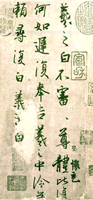 羲之白不審尊體比復
何如遲復奉告羲之中冷無
賴尋復白羲之白